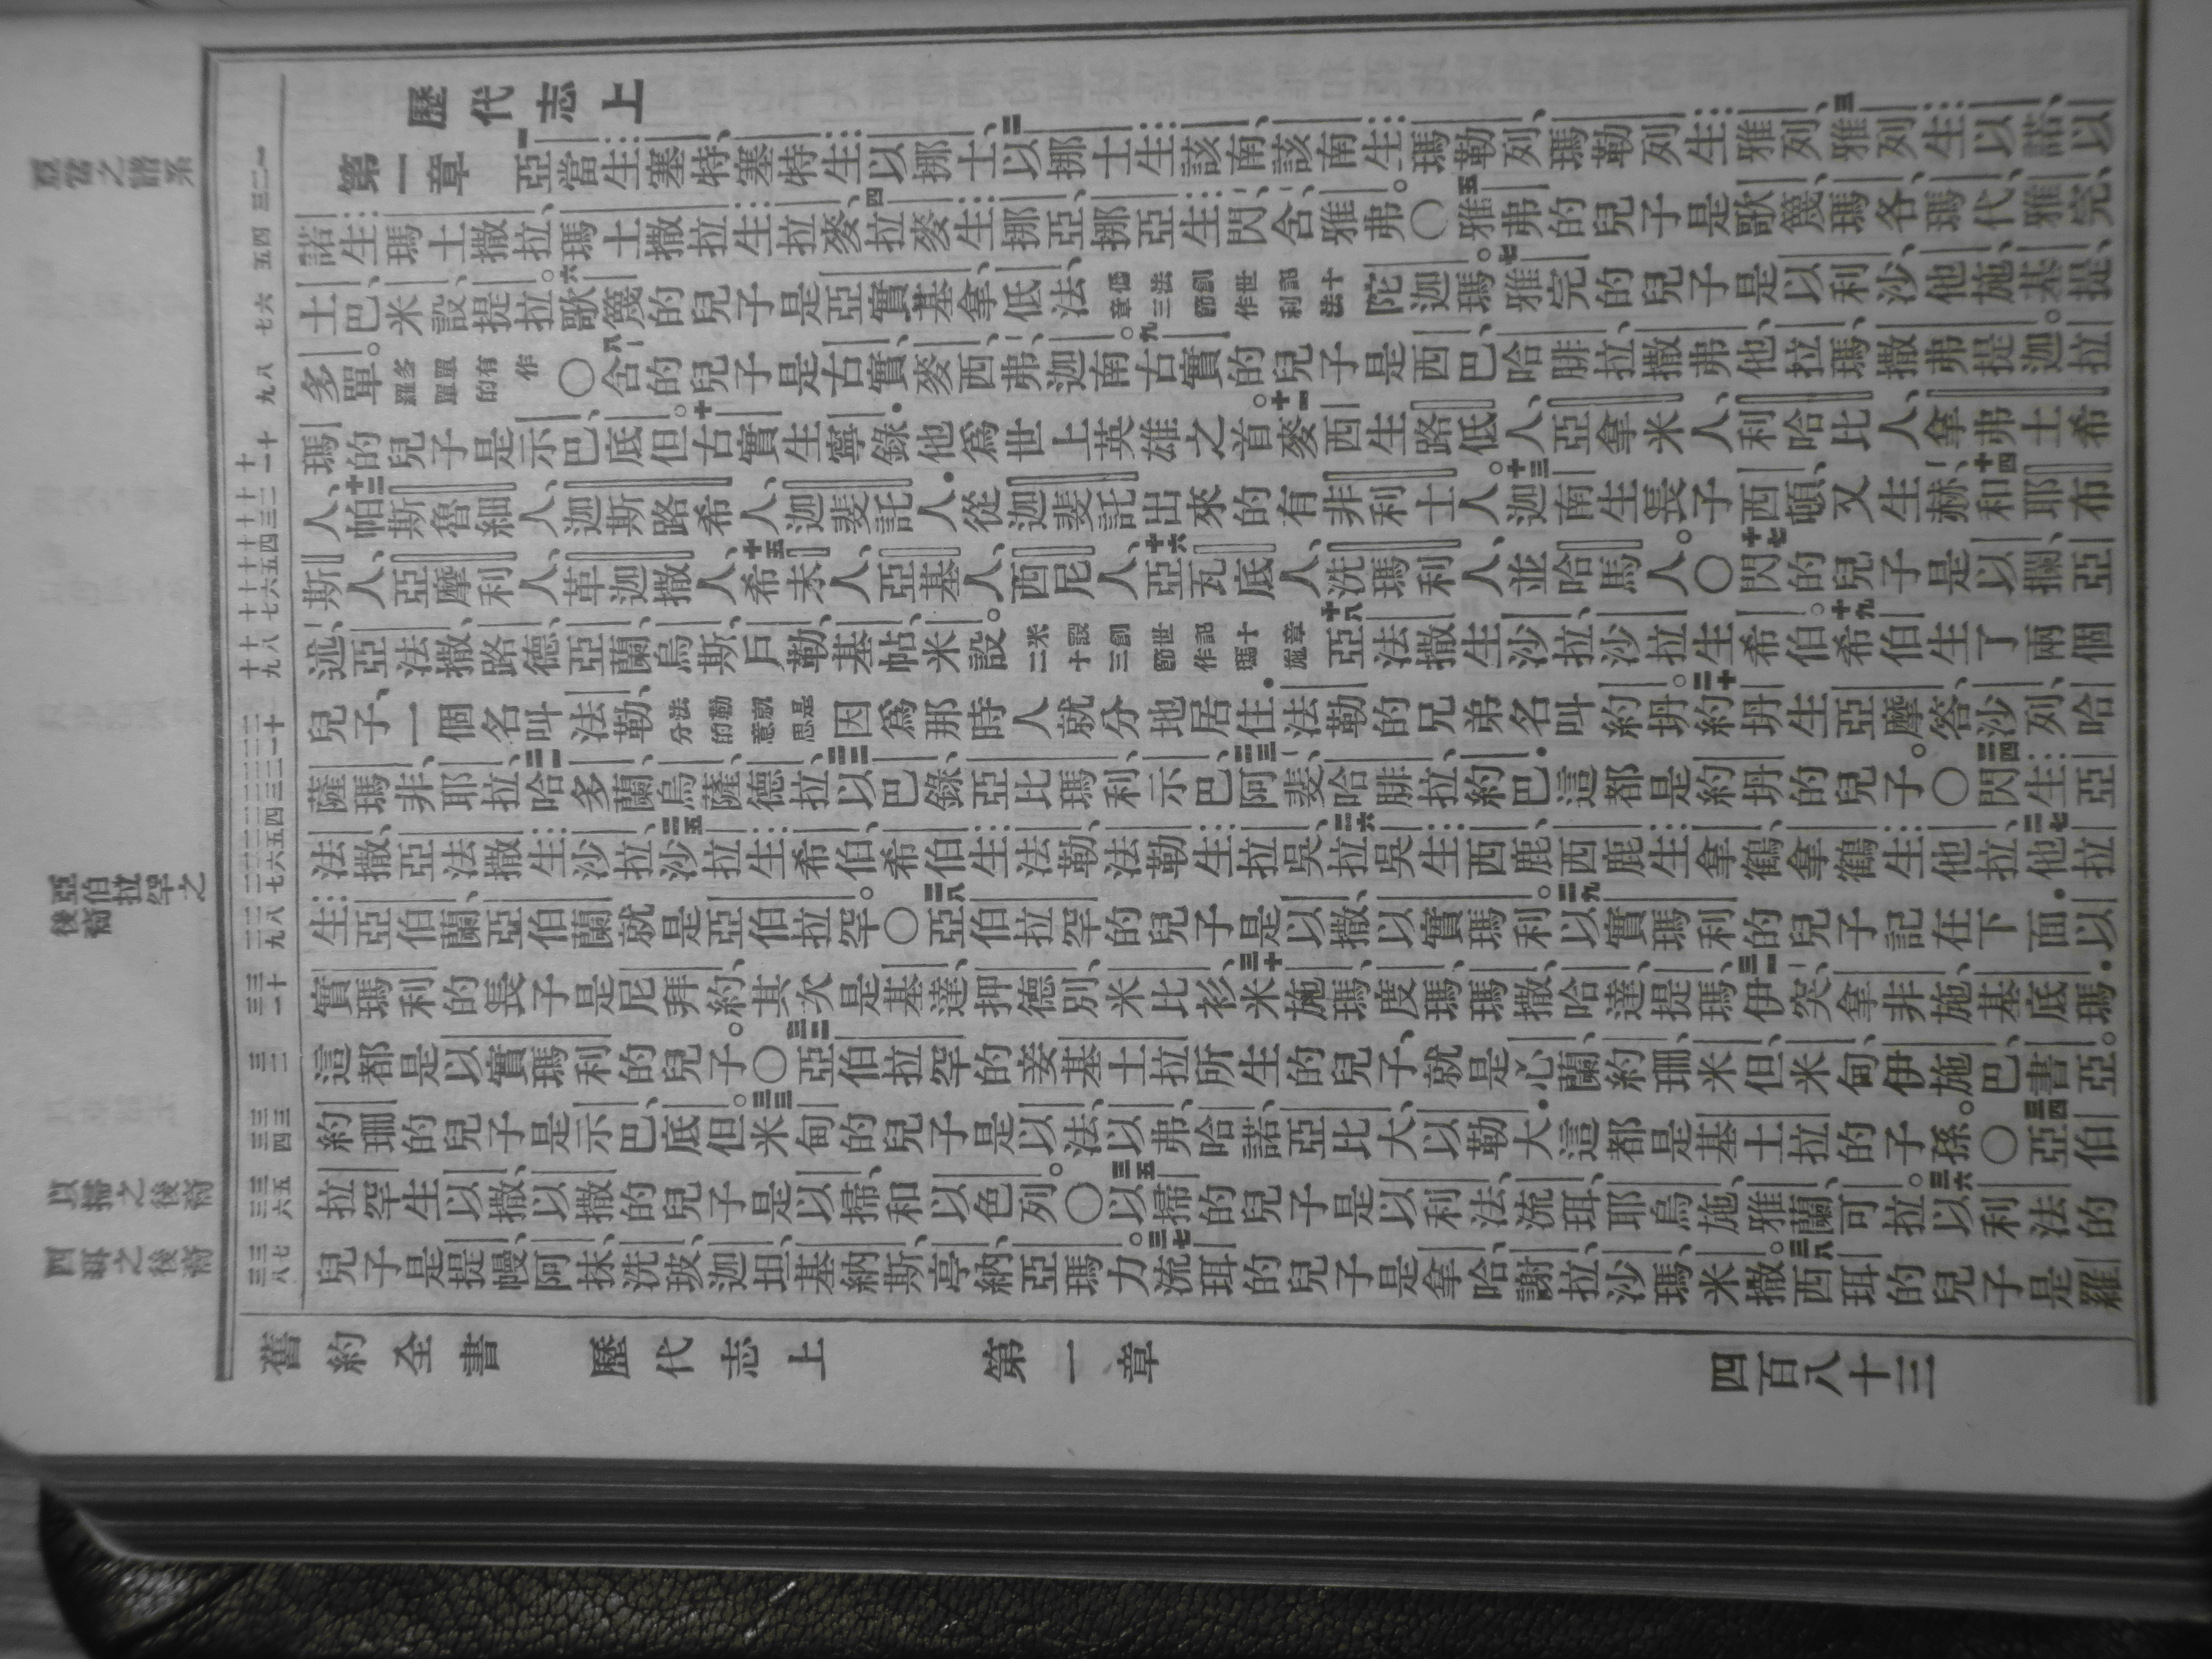 歷代志上
第一章 一亞當生塞特、塞特生以挪士、二以挪士生該南、該南生瑪勒列、瑪勒列生雅列、三雅列生以諾、以
諾生瑪土撒拉、瑪土撒拉生拉麥、四拉麥生挪亞、挪亞生閃、含、雅弗。○五雅弗的兒子是歌篾、瑪各、瑪代、雅完、
土巴、米設、提拉。六歌篾的兒子是亞實基拿、低法、低法創世記十章三節作利法陀迦瑪。七雅完的兒子是以利沙、他施、基提、
多單。多單有作羅單的○八含的兒子是古實、麥西、弗、迦南。九古實的兒子是西巴、哈腓拉、撒弗他、拉瑪、撒弗提迦。拉
瑪的兒子是示巴、底但。十古實生寧錄．他爲世上英雄之首。十一麥西生路低人、亞拿米人、利哈比人、拿弗土希
人、十二帕斯魯細人、迦斯路希人、迦斐託人．從迦斐託出來的有非利士人。十三迦南生長子西頓、又生赫、十四和耶布
斯人、亞摩利人、革迦撒人、十五希未人、亞基人、西尼人、十六亞瓦底人、洗瑪利人、並哈馬人。○十七閃的兒子是以攔、亞
述、亞法撒、路德、亞蘭、烏斯、戶勒、基帖、米設。米設創世記十章二十三節作瑪施十八亞法撒生沙拉、沙拉生希伯。十九希伯生了兩個
兒子、一個名叫法勒、法勒就是分的意思因爲那時人就分地居住．法勒的兄弟名叫約坍。二十約坍生亞摩答、沙列、哈
薩瑪非、耶拉、二一哈多蘭、烏薩、德拉、二二以巴錄、亞比瑪利、示巴、二三阿斐、哈腓拉、約巴．這都是約坍的兒子。○二四閃生亞
法撒、亞法撒生沙拉、二五沙拉生希伯、希伯生法勒、法勒生拉吳、二六拉吳生西鹿、西鹿生拿鶴、拿鶴生他拉、二七他拉
生亞伯蘭、亞伯蘭就是亞伯拉罕。○二八亞伯拉罕的兒子是以撒、以實瑪利。二九以實瑪利的兒子記在下面．以
實瑪利的長子是尼拜約、其次是基達、押德別、米比衫、三十米施瑪、度瑪、瑪撒、哈達、提瑪、三一伊突、拿非施、基底瑪．
這都是以實瑪利的兒子。○三二亞伯拉罕的妾基土拉所生的兒子、就是心蘭、約珊、米但、米甸、伊施巴、書亞。
約珊的兒子是示巴、底但。三三米甸的兒子是以法、以弗、哈諾、亞比大、以勒大．這都是基土拉的子孫。○三四亞伯
拉罕生以撒、以撒的兒子是以掃、和以色列。○三五以掃的兒子是以利法、流珥、耶烏施、雅蘭、可拉。三六以利法的
兒子是提幔、阿抹、洗玻、迦坦、基納斯、亭納、亞瑪力。三七流珥的兒子是拿哈、謝拉、沙瑪、米撒。三八西珥的兒子是羅
亞當之譜系
亞伯拉罕之
後裔
以掃之後裔
西珥之後裔
舊約全書 歷代志上 第一章 四百八十三